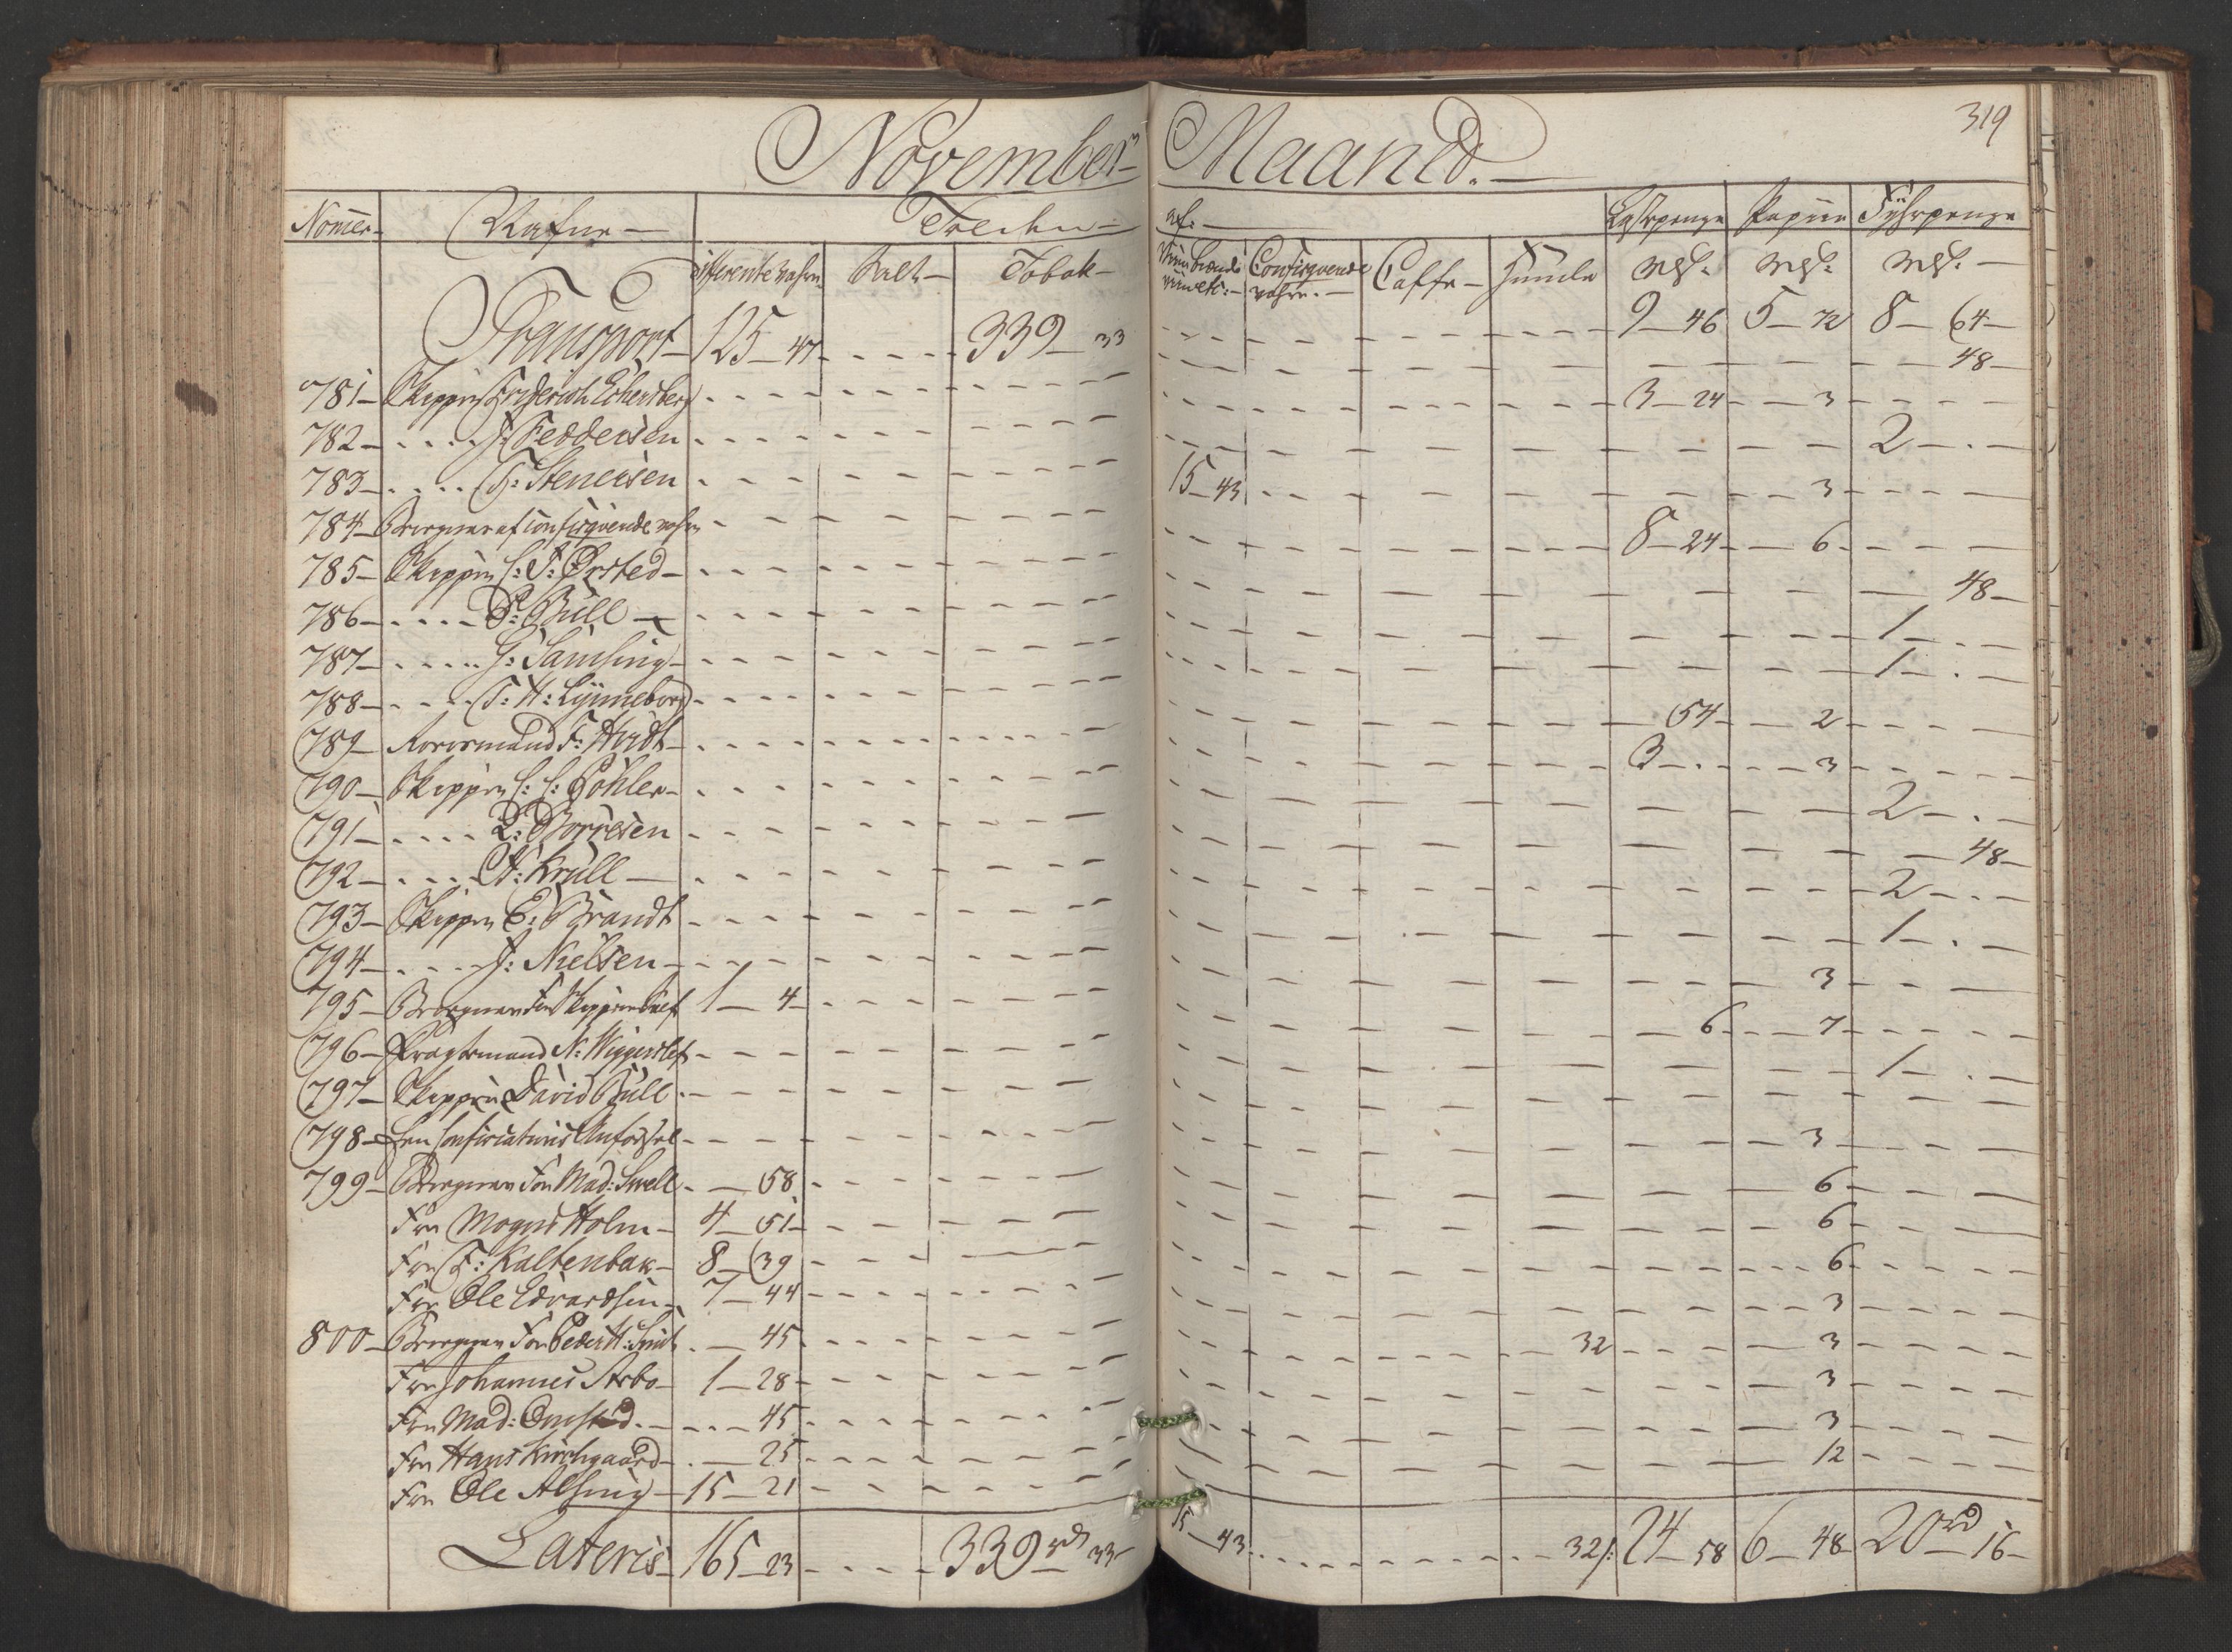 319
November Maaned.
Nomer Nafne Tolden af Lastpenge Papiir Fyhrpenge
differente vahre Salt Tobak Confisqverede vahre. Caffe Humle
Transport 125 47 339 33 9 46 5 72 8 64
781 Skipper Friderich 48
782 J: Feddersen 3 24 3
783 Stenersen 2
784 Borgere af confisqverede vahre 15 43 3
785 Skipper C: F: Ørsted 8 24 6
786 P: Bull 48
787 G: Samsing 1
788 H: Lynneborg 1
789 F: Hvidt 54 2
790 Skipper C: C: Göhler 3 3
791 Borresen 2
792 H: Krull 48
793 Skipper E: Brandt 2
794 J: Nielsen 1
795 Borgeren Skipper 1 4 3
796 Fragtemand N: Wiggerslef 6 7
797 Skipper David Bull 1
798
799 Borgeren For Mad: 58 3
For Mogens Holm 4 51 6
For Kaltenbak 8 39 6
For Ole Edvardsen 7 44 6
800 Borgeren For Peder H: 45 3
For Johannes Arbo 1 28 32 3
For Mad: 45 3
For Hans Kirchgaard 25 3
For Ole Alsing 15 21 12
Lateris 165 23 339 rd 33 15 43 32 24 58 6 48 20 rd 16